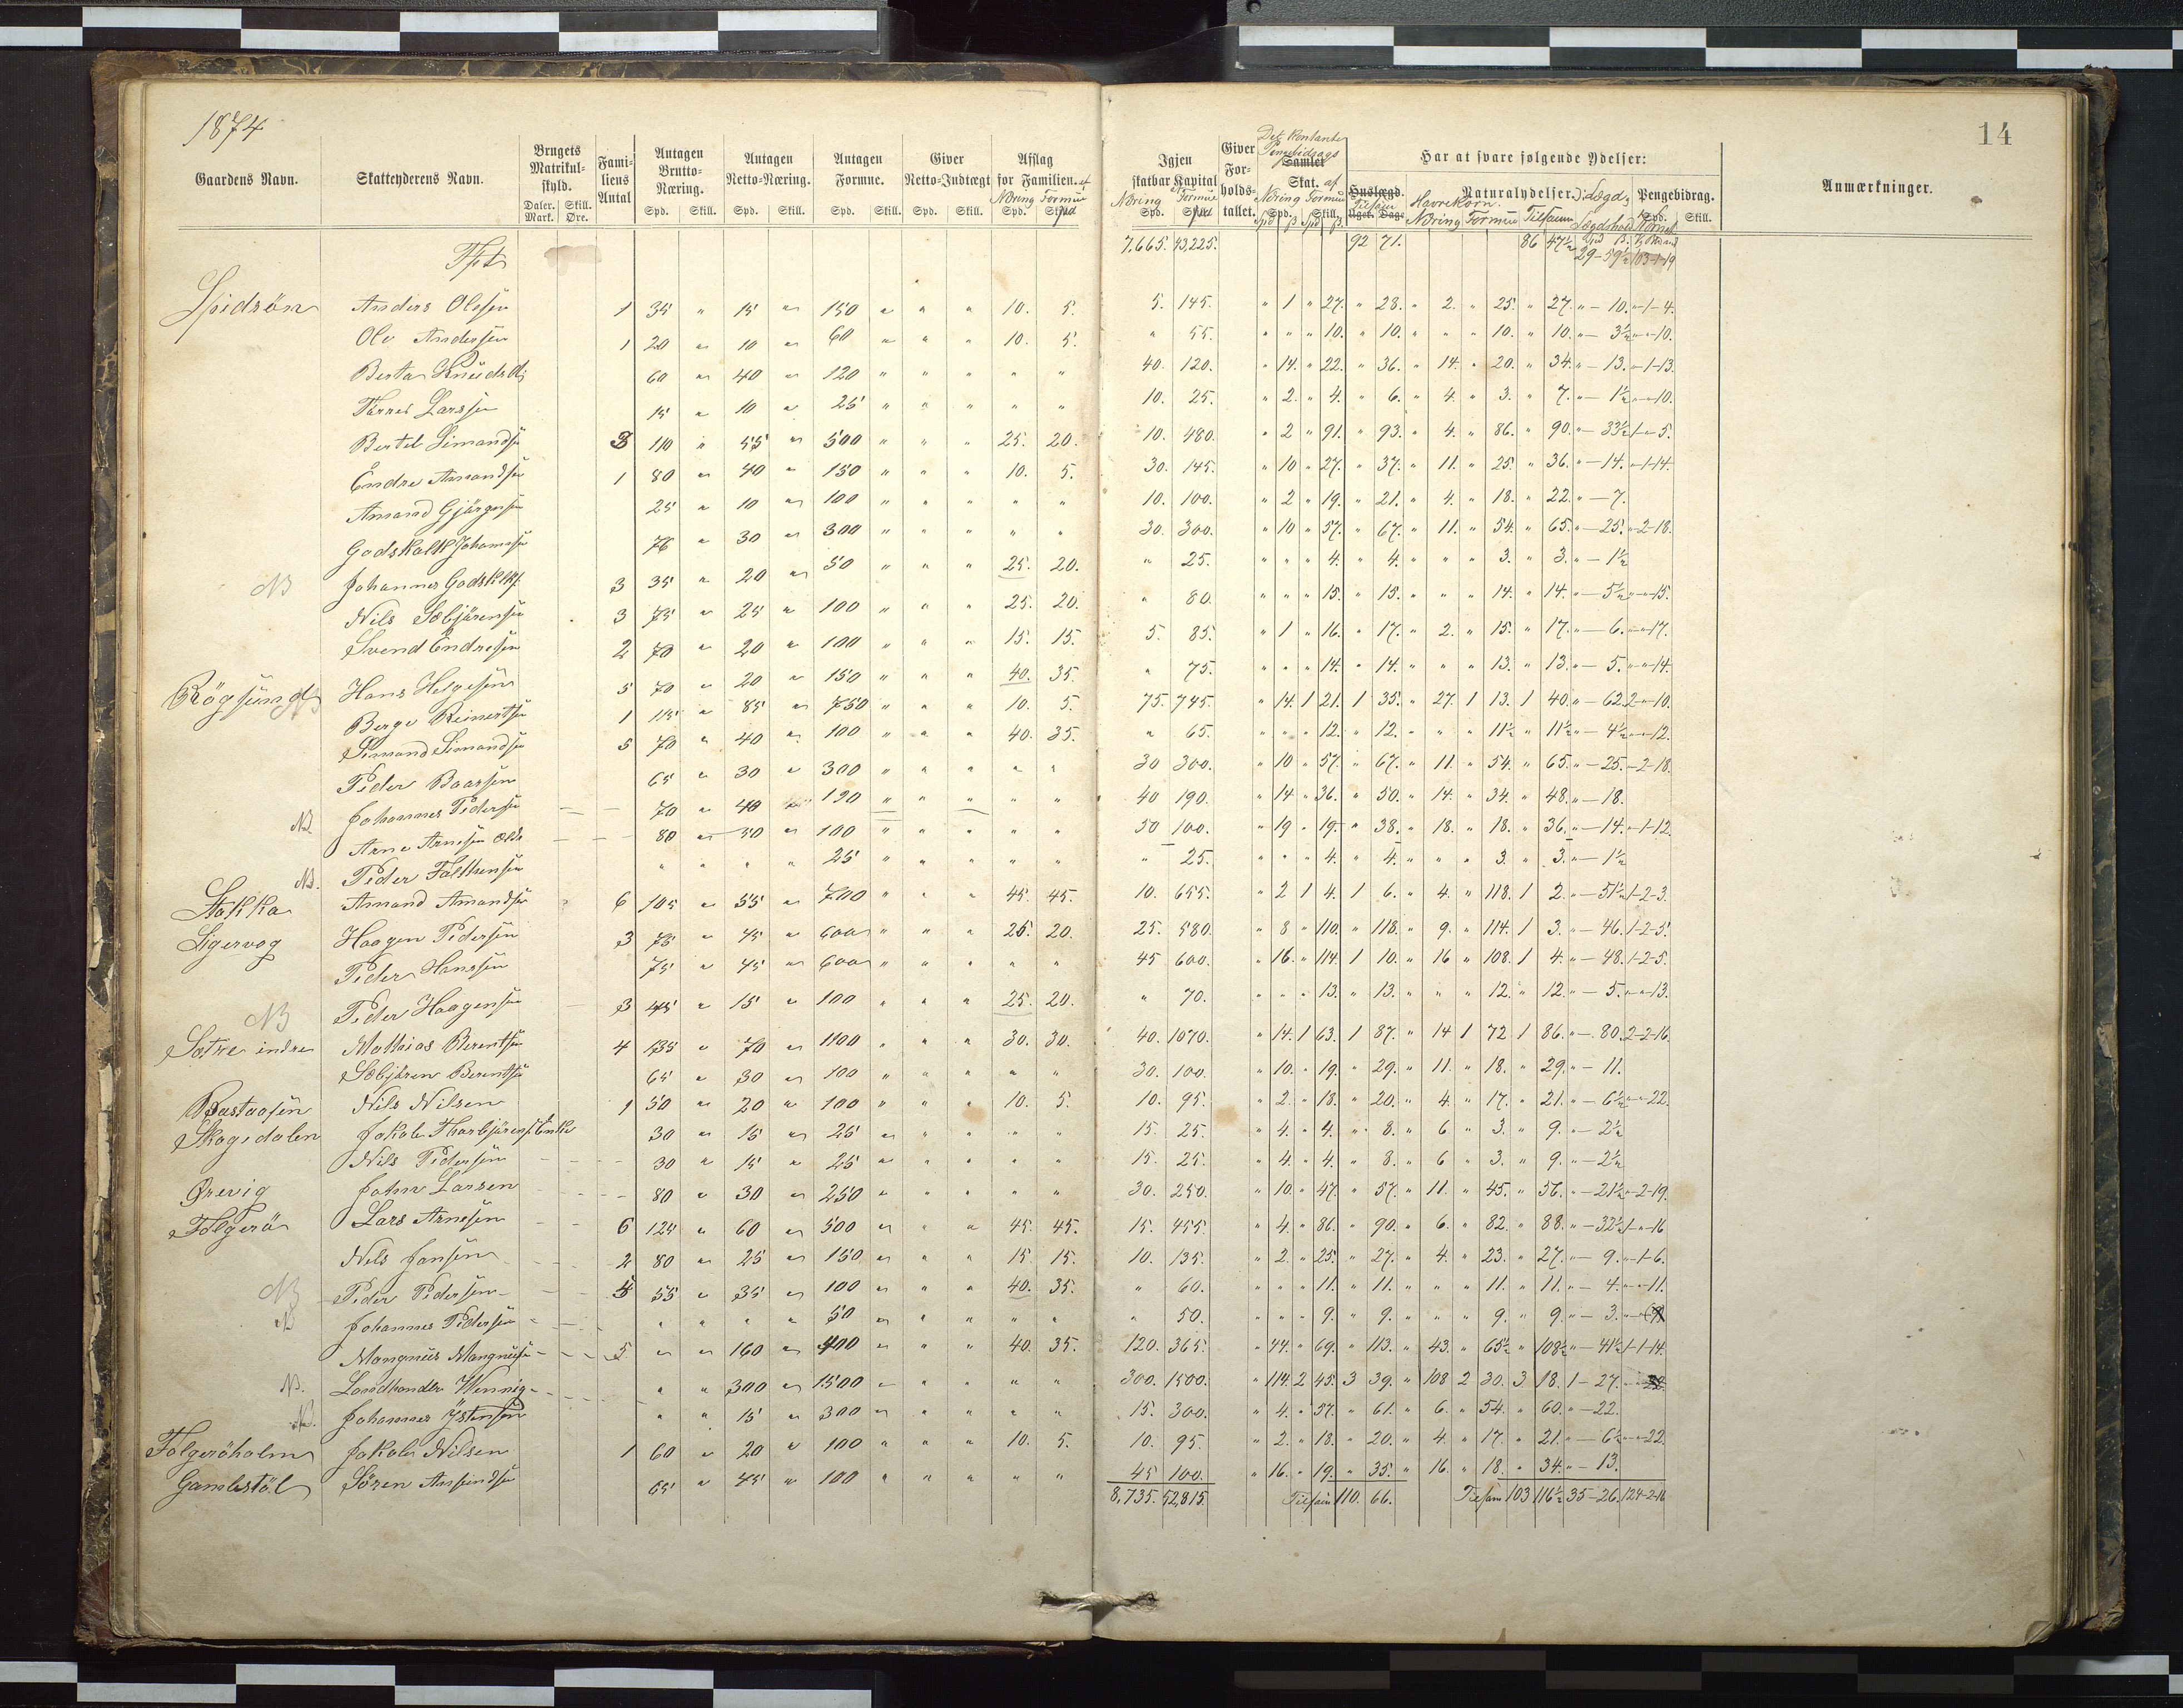 1874
14
Gaardens Navn. Skatteyderens Navn. Brugets Matrikulskyld. Daler. Mark. Skill. Øre. Familiens Antal Antagen Brutto-Næring. Spd. Skill. Antagen Netto-Næring. Spd. Skill. Antagen Formue. Spd. Skill. Giver Netto-Indtægt Spd. Skill. Afslag for Familien. af Næring Formue Spd. Skill. Spd
Igjen skatbar Kapital af Næring Formue Spd. Giver Forholdstallet. Det kontante Pengebidrags Samlet Skat. af Næring Formue Spd. Skill. Har at svare følgende Ydelser: Huslægd. Uger. Dage Tilsam Naturalydelser. Havrekorn. Næring Formue Tilsam Lægd, Pengebidrag. Spd. Skill. Anmærkninger.
Tft 7,665. 43,225. 92 71. 86 47½ 29-59½ 103-1-19
Spidsöen Anders Olesen 1 35 " 15 " 150 " " " 10. 5. 5. 145. " 1 " 27. " 28. " 2. " 25. " 27. "-10. "-1-4.
Ole Andersen 1 20 " 10 " 60 " " " 10. 5. " 55. " " " 10. " 10. " " " 10. " 10. "-3½ "-"-10.
Berta Knudsd. 60 " 40 " 120 " " " " " 40. 120. " 14. " 22. " 36. " 14. " 20. " 34. "-13. "-1-13.
Tørres Larssen 15 " 10 " 25 " " " " " 10. 25. " 2. " 4. " 6. " 4. " 3. " 7. "-1½ "-"-10.
Bertel Simonds. 3 110 " 55 " 500 " " " 25. 20. 10. 480. " 2 " 91. " 93. " 4. " 86. " 90. "-33½ 1-"-5.
Endre Amandsen 1 80 " 40 " 150 " " " 10. 5. 30. 145. " 10 " 27. " 37. " 11. " 25. " 36. "-14. "-1-14.
Amand Gjärgensen 25 " 10 " 100 " " " " " 10. 100. " 2 " 19. " 21. " 4. " 18. " 22. "-7.
Godskalk Johannesen 76 " 30 " 300 " " " " " 30. 300. " 10 " 57. " 67. " 11. " 54. " 65. "-25. "-2-18.
NB Johannes Godsk. 3 35 " 20 " 50 " " " 25. 20. " 25. " " " 4. " 4. " " " 3. " 3. "-1½
Nils Sæbjörensen 3 75 " 25 " 100 " " " 25. 20. " 80. " " " 15. " 15. " " " 14. " 14. "-5½ "-"-15.
Svend Endresen 2 70 " 20 " 100 " " " 15. 15. 5. 85. " 1 " 16. " 17. " 2. " 15. " 17. "-6. "-"-17.
Rögsund Hans Helgesen 5 70 " 20 " 150 " " " 40. 35. " 75. " " " 14. " 14. " " " 13. " 13. "-5. "-"-14.
NB Berge Reinertsen 1 115 " 85 " 750 " " " 10. 5. 75. 745. " 14. 1 21. 1 35. " 27. 1 13. 1 40. "-62. 2-"-10.
Simand Simandsen 5 70 " 40 " 100 " " " 40. 35. " 65. " " " 12. " 12. " " " 11½ " 11½ "-4½ "-"-12.
Peder Baarsen 65 " 30 " 300 " " " " " 30 300. " 10 " 57. " 67. " 11. " 54. " 65. "-25. "-2-18.
Johannes Pedersen 70 " 40 " 190 " " " " " 40 190. " 14 " 36. " 50. " 14. " 34. " 48. "-18.
NB Arne Arnesen 80 " 50 " 100 " " " " " 50 100. " 19 " 19. " 38. " 18. " 18. " 36. "-14. "-1-12.
NB. Peder " " " " 25 " " " " " " 25. " " " 4. " 4. " " " 3. " 3. "-1½
Stokka Amand Amandsen 6 105 " 55 " 700 " " " 45. 45. 10. 655. " 2 1 4. 1 6. " 4. " 118. 1 2. "-51½ 1-2-3.
Sigervog Haagen Pedersen 3 75 " 45 " 600 " " " 25. 20. 25. 580. " 8 " 110. " 118. " 9. " 114. 1 3. "-46. 1-2-5.
Peder Hanssen 75 " 45 " 600 " " " " " 45 600. " 16. " 114. 1 10. " 16 " 108. 1 4. "-48. 1-2-5.
NB Peder Haagensen 3 45 " 15 " 100 " " " 25. 20. " 70. " " " 13. " 13. " " " 12. " 12. "-5. "-"-13.
Sætre indre Mathias Berentsen 4 135 " 70 " 1100 " " " 30. 30. 40. 1070. " 14. 1 63. 1 87. " 14 1 72 1 86. "-80. 2-2-16.
Sæbjören Berentsen 65 " 30 " 100 " " " " " 30. 100. " 10. " 19. " 29. " 11. " 18. " 29. "-11.
Nils Nilsen 1 50 " 20 " 100 " " " 10. 5. 10. 95. " 2. " 18. " 20. " 4. " 17. " 21. "-6½ "-"-22.
Skogsdalen Jakob Thorbjörens. Enke 30 " 15 " 25 " " " " " 15. 25. " 4. " 4. " 8. " 6 " 3. " 9. "-2½
Nils Pedersen 30 " 15 " 25 " " " " " 15. 25. " 4. " 4. " 8. " 6 " 3. " 9. "-2½
Ørevig John Larsen 80 " 30 " 250 " " " " " 30. 250. " 10. " 47. " 57. " 11. " 45. " 56. "-21½ "-2-19.
Folgerö Lars Arnesen 6 125 " 60 " 500 " " " 45. 45. 15. 455. " 4. " 86. " 90. " 6. " 82. " 88. "-32½ 1-"-16
Nils Jansen 2 80 " 25 " 150 " " " 15. 15. 10. 135. " 2. " 25. " 27. " 4. " 23. " 27. "-9. "-1-6.
NB Peder Pedersen 5 55 " 35 " 100 " " " 40. 35. " 60. " " " 11. " 11. " " " 11. " 11. "-4. "-"-11.
NB Johannes Pedersen " " " " 50 " " " " " " 50. " " " 9. " 9. " " " 9. " 9. "-3. "-"-
Mangnus Mangnusen 5 " " 160 " 400 " " " 40. 35. 120. 365. " 44. " 69. " 113. " 43. " 65½ " 108½ "-41½ 1-1-14.
NB. Landhandler Wennig " " 300 " 1500 " " " " " 300. 1500. " 114. 2 45. 3 39. " 108 2 30. 3 18. 1-27.
NB. Johannes Ystensen " " 15 " 300 " " " " " 15. 300. " 4. " 57. " 61. " 6. " 54. " 60. "-22.
Folgeröholm Jakob Nilsen 1 60 " 20 " 100 " " " 10. 5. 10. 95. " 2. " 18. " 20. " 4. " 17. " 21. "-6½ "-"-22.
Gamlestöl Sören Amundsen 65 " 45 " 100 " " " " " 45 100. " 16. " 19. " 35. " 16. " 18. " 34. "-13.
8,735. 52,815. Tilsam 110. 66. Tilsam 103 116½ 35-26. 124-2-16